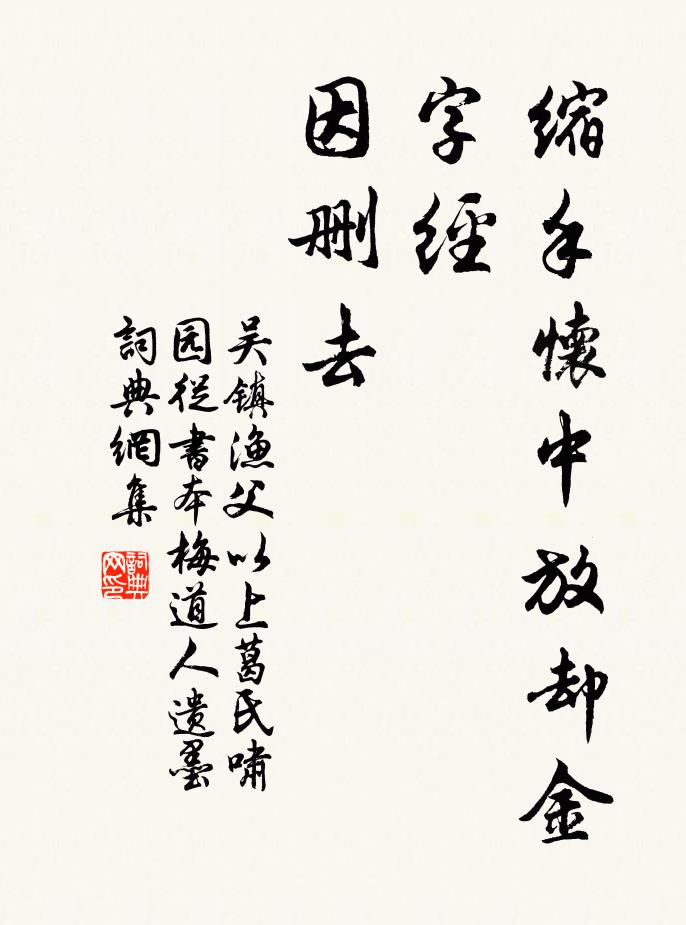 縮手懷中放却金
字經
因删去
吴镇漁父以上葛氏啸
园從書本梅道人遗墨
詞典網集
詞典網印